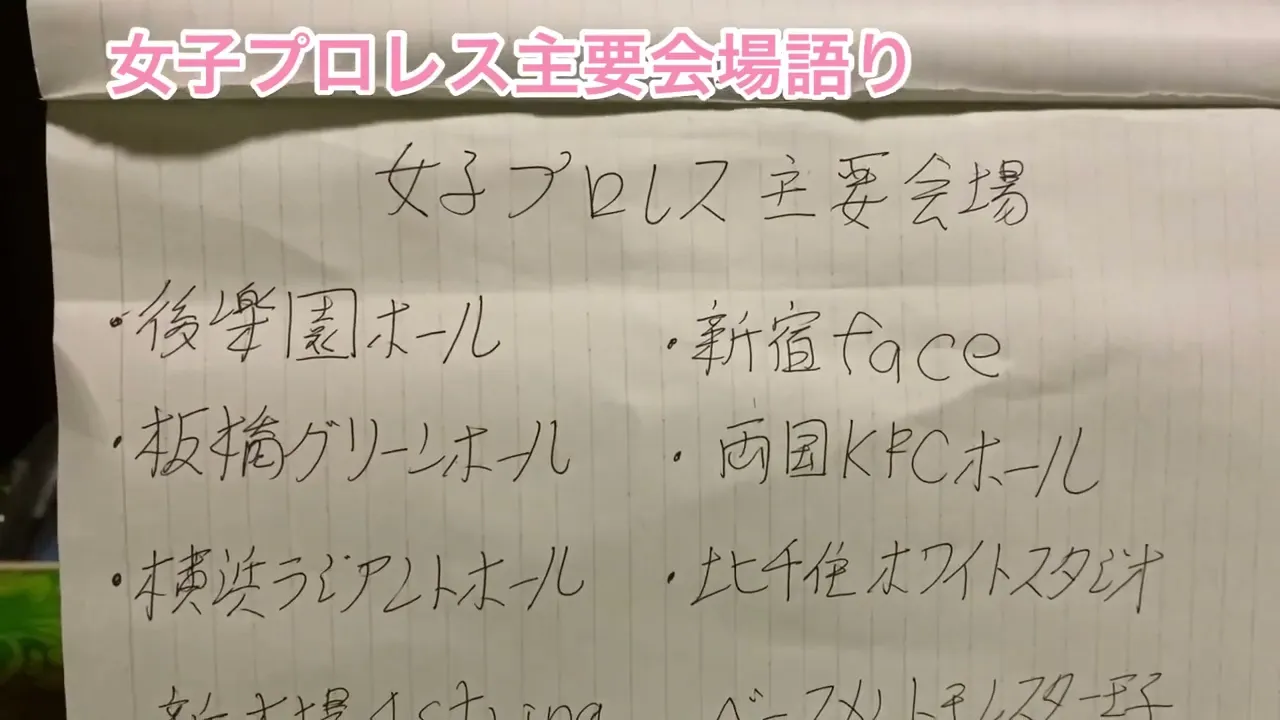 女子プロレス主要会場語り
女子プロレス主要会場
・後楽園ホール
・新宿face
・板橋グリーンホール
・両国KFCホール
・横浜ラジアントホール
・北千住ホワイトスタジオ
新木場1string
ベースメントモンスター王子